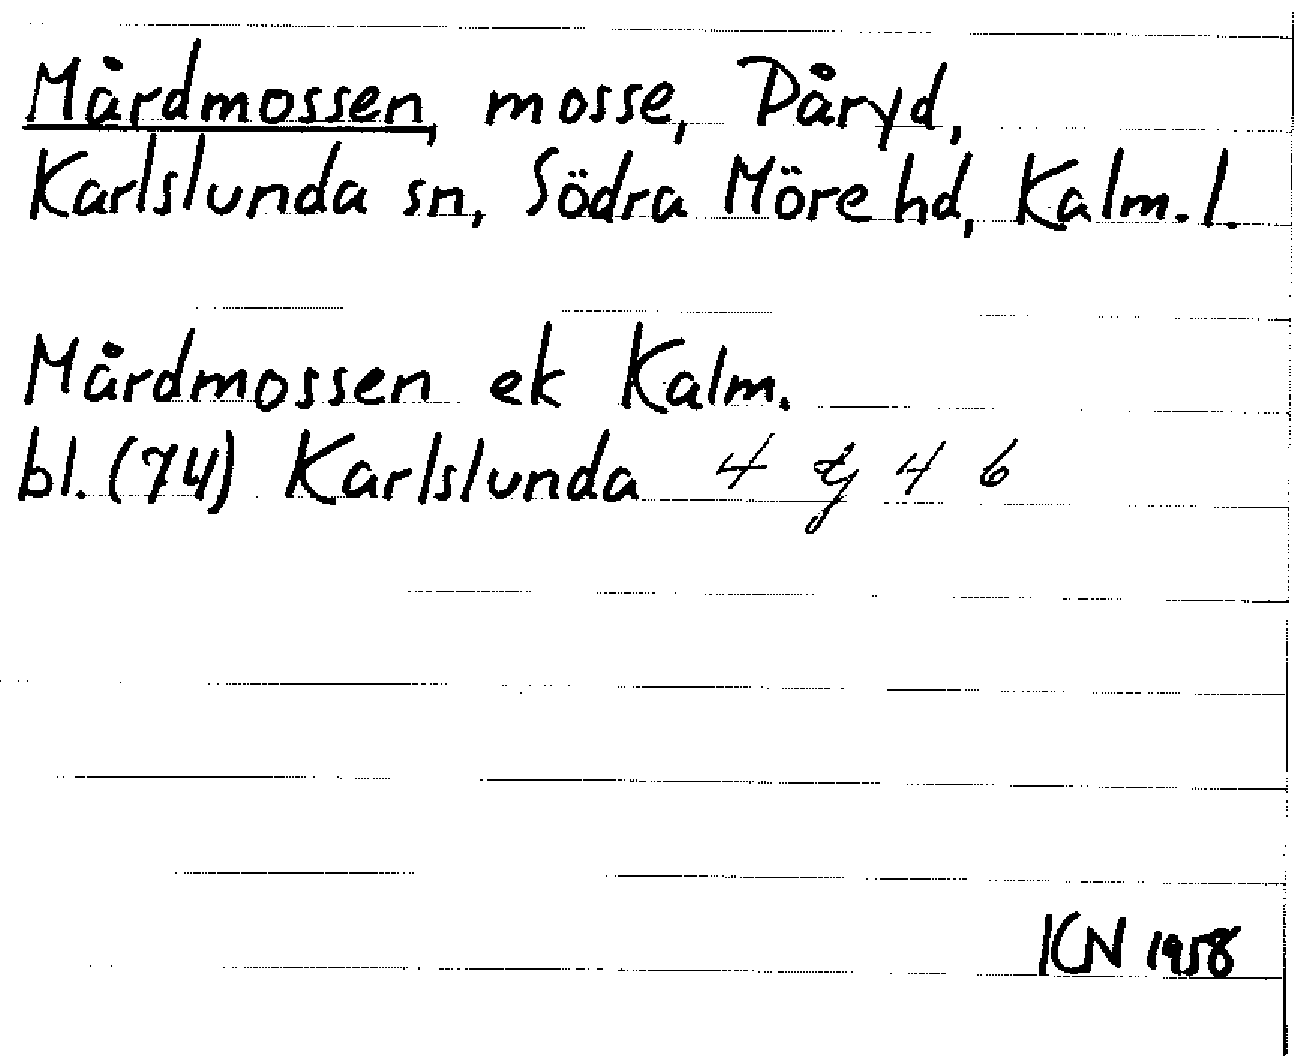 Mårdmossen, mosse, Påryd,
Karlslunda sn, Södra Möre hd, Kalm. l.
Mårdmossen ek Kalm.
bl. (74) Karlslunda 4 4 6
KN 1958